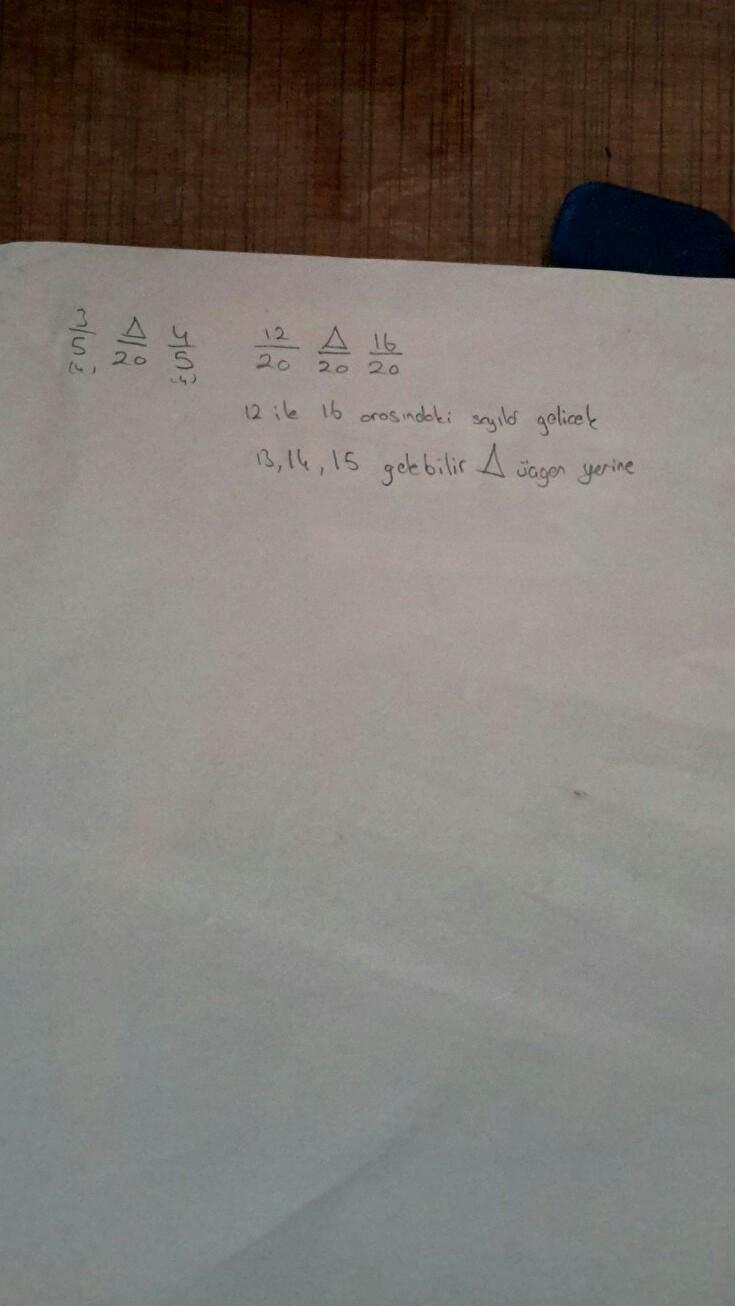 3/5 Δ/20 4/5 12/20 Δ/20 16/20
(4) (4)
12 ile 16 arasındaki sayılar gelicek
13, 14, 15 gelebilir Δ üçgen yerine